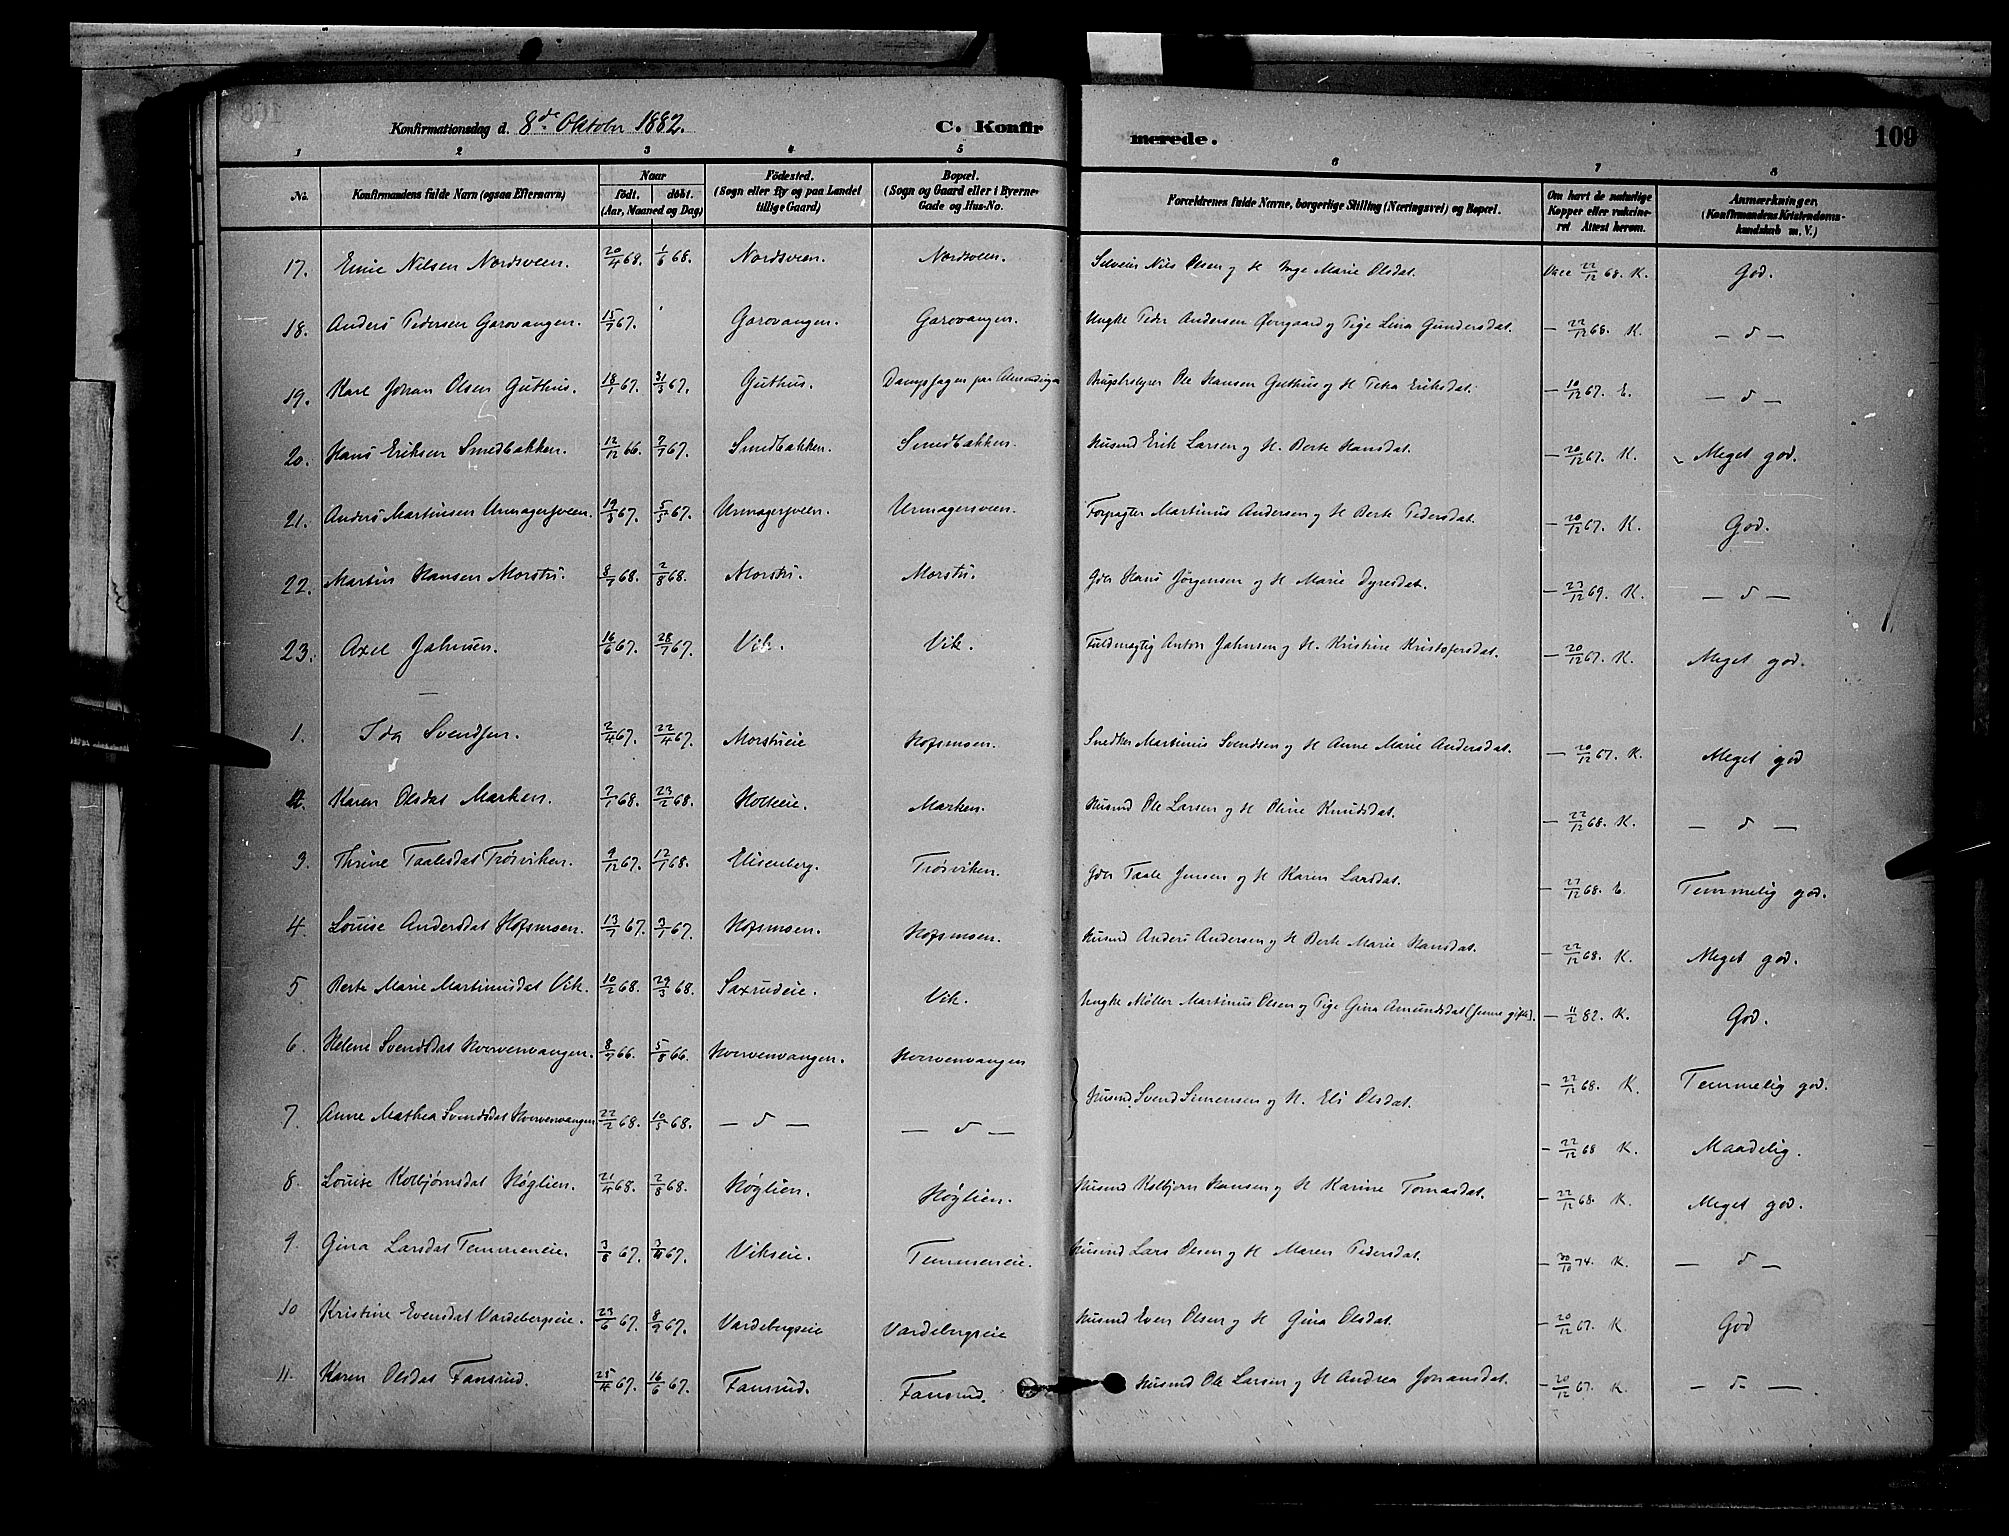 Konfirmationsdag d. 8de Oktober 1882. C. Konfirmerede. 109
1 2 3 4 5 6 7 8
No. Konfirmandens fulde Navn (ogsaa Efternavn) Naar født. døbt. (Aar, Maaned og Dag) Fødested. (Sogn eller By og paa Landet tillige Gaard) Bopæl. (Sogn og Gaard eller i Byerne Gade og Hus-No. Forældrenes fulde Navne, borgerlige Stilling (Næringsvei) og Bopæl. Om havt de naturlige Kopper eller vaccineret Attest herom. Anmærkninger. (Konfirmandens Kristendomskundskab m. V.)
17. Nilsen Nordsveen. 20/4 68. 1/6 68. Nordsveen. Nordsveen. Selveier Nils Olsen og H Inge Marie Olsdat. Vacc 22/12 68. K. God.
18. Anders Pedersen Garovangen. 15/7 67. Garovangen. Garovangen. Ungke Peder Andersen Øvergaard og Pige Lina Gundersdat. — 22/12 68. K. — d —
19. Karl Johan Olsen Guthus. 18/1 67. 31/3 67. Guthus. Dampsagen paa Almendingen Brugsbestyrer Ole Hansen Guthus og H Petra Eriksdat. — 10/12 67. E. — d —
20. Hans Eriksen Smedbakken. 12/12 66. 7/7 67. Smedbakken. Smedbakken. Husmd Erik Larsen og H. Berte Hansdat. — 20/12 67. K. Meget god.
21. Anders Martinsen Urmagersveen. 19/3 67. 5/5 67. Urmagersveen. Urmagersveen. Forpagter Martinus Andersen og H Berte Pedersdat. — 20/12 67. K. God.
22. Martin Hansen Morstu. 8/7 68. 2/8 68. Morstu. Morstu. Gdr Hans Jørgensen og H Marie Dyresdat. — 23/12 69. K. — d —
23. Axel Jahnsen. 16/6 67. 28/7 67. Vik. Vik. Fuldmægtig Anton Jahnsen og H. Kristine Kristofersdat. — 20/12 67. K. Meget god.
—
1. Ida Svendsen. 2/4 67. 22/4 67. Morstueie Hofsmoen. Snedker Martinus Svendsen og H Anne Marie Andersdat. — 20/12 67. K. Meget god
2. Karen Olsdat Marken. 7/1 68. 23/2 68. Holteie. Marken. Husmd Ole Larsen og H Oline Knudsdat. — 22/12 68. K. — d —
3. Thrine Taalesdat Trøsviken. 9/12 67. 12/1 68. Elisenberg. Trøsviken. Gdr Taale Jensen og H Karen Larsdat. — 27/12 68. E. Temmelig god.
4. Louise Andersdat Hofsmoen. 13/1 67. 3/7 67. Hofsmoen. Hofsmoen. Husmd Anders Andersen og H Berte Marie Hansdat. — 22/12 68. K. Meget god.
5 Berte Marie Martinusdat Vik. 10/2 68. 29/3 68. Saxrudeie. Vik. Ungke Møller Martinus Olsen og Pige Gina Amundsdat — 11/2 82. K. God.
6. Helene Svendsdat Korvenvangen. 8/7 66. 5/8 66. Korvenvangen. Korvenvangen Husmd. Svend Simensen og H. Eli Olsdat. — 22/12 68. K. Temmelig god.
7. Anne Mathea Svendsdat Korvenvangen 22/2 68. 10/5 68. — d — — d — — 22/12 68 K. Maadelig.
8. Louise Kolbjørnsdat Høglien. 21/4 68. 2/8 68. Høglien. Høglien. Husmd Kolbjørn Hansen og H Karine Tomasdat. — 22/12 68. K. Meget god.
9. Gina Larsdat Temmeneie. 3/8 67. 3/11 67. Vikseie. Temmeneie. Husmd Lars Olsen og H Maren Pedersdat. — 30/10 74. K. — d —
10 Kristine Evensdat Vardebergseie. 23/6 67. 8/9 67. Vardebergseie Vardebergseie Husmd Even Olsen og H Gina Olsdat. — 20/12 67. K. God
11. Karen Olsdat Fansrud. 25/4 67. 16/6 67. Fansrud. Fansrud. Husmd Ole Larsen og H Andrea Johansdat. — 20/12 67. K. — d — .